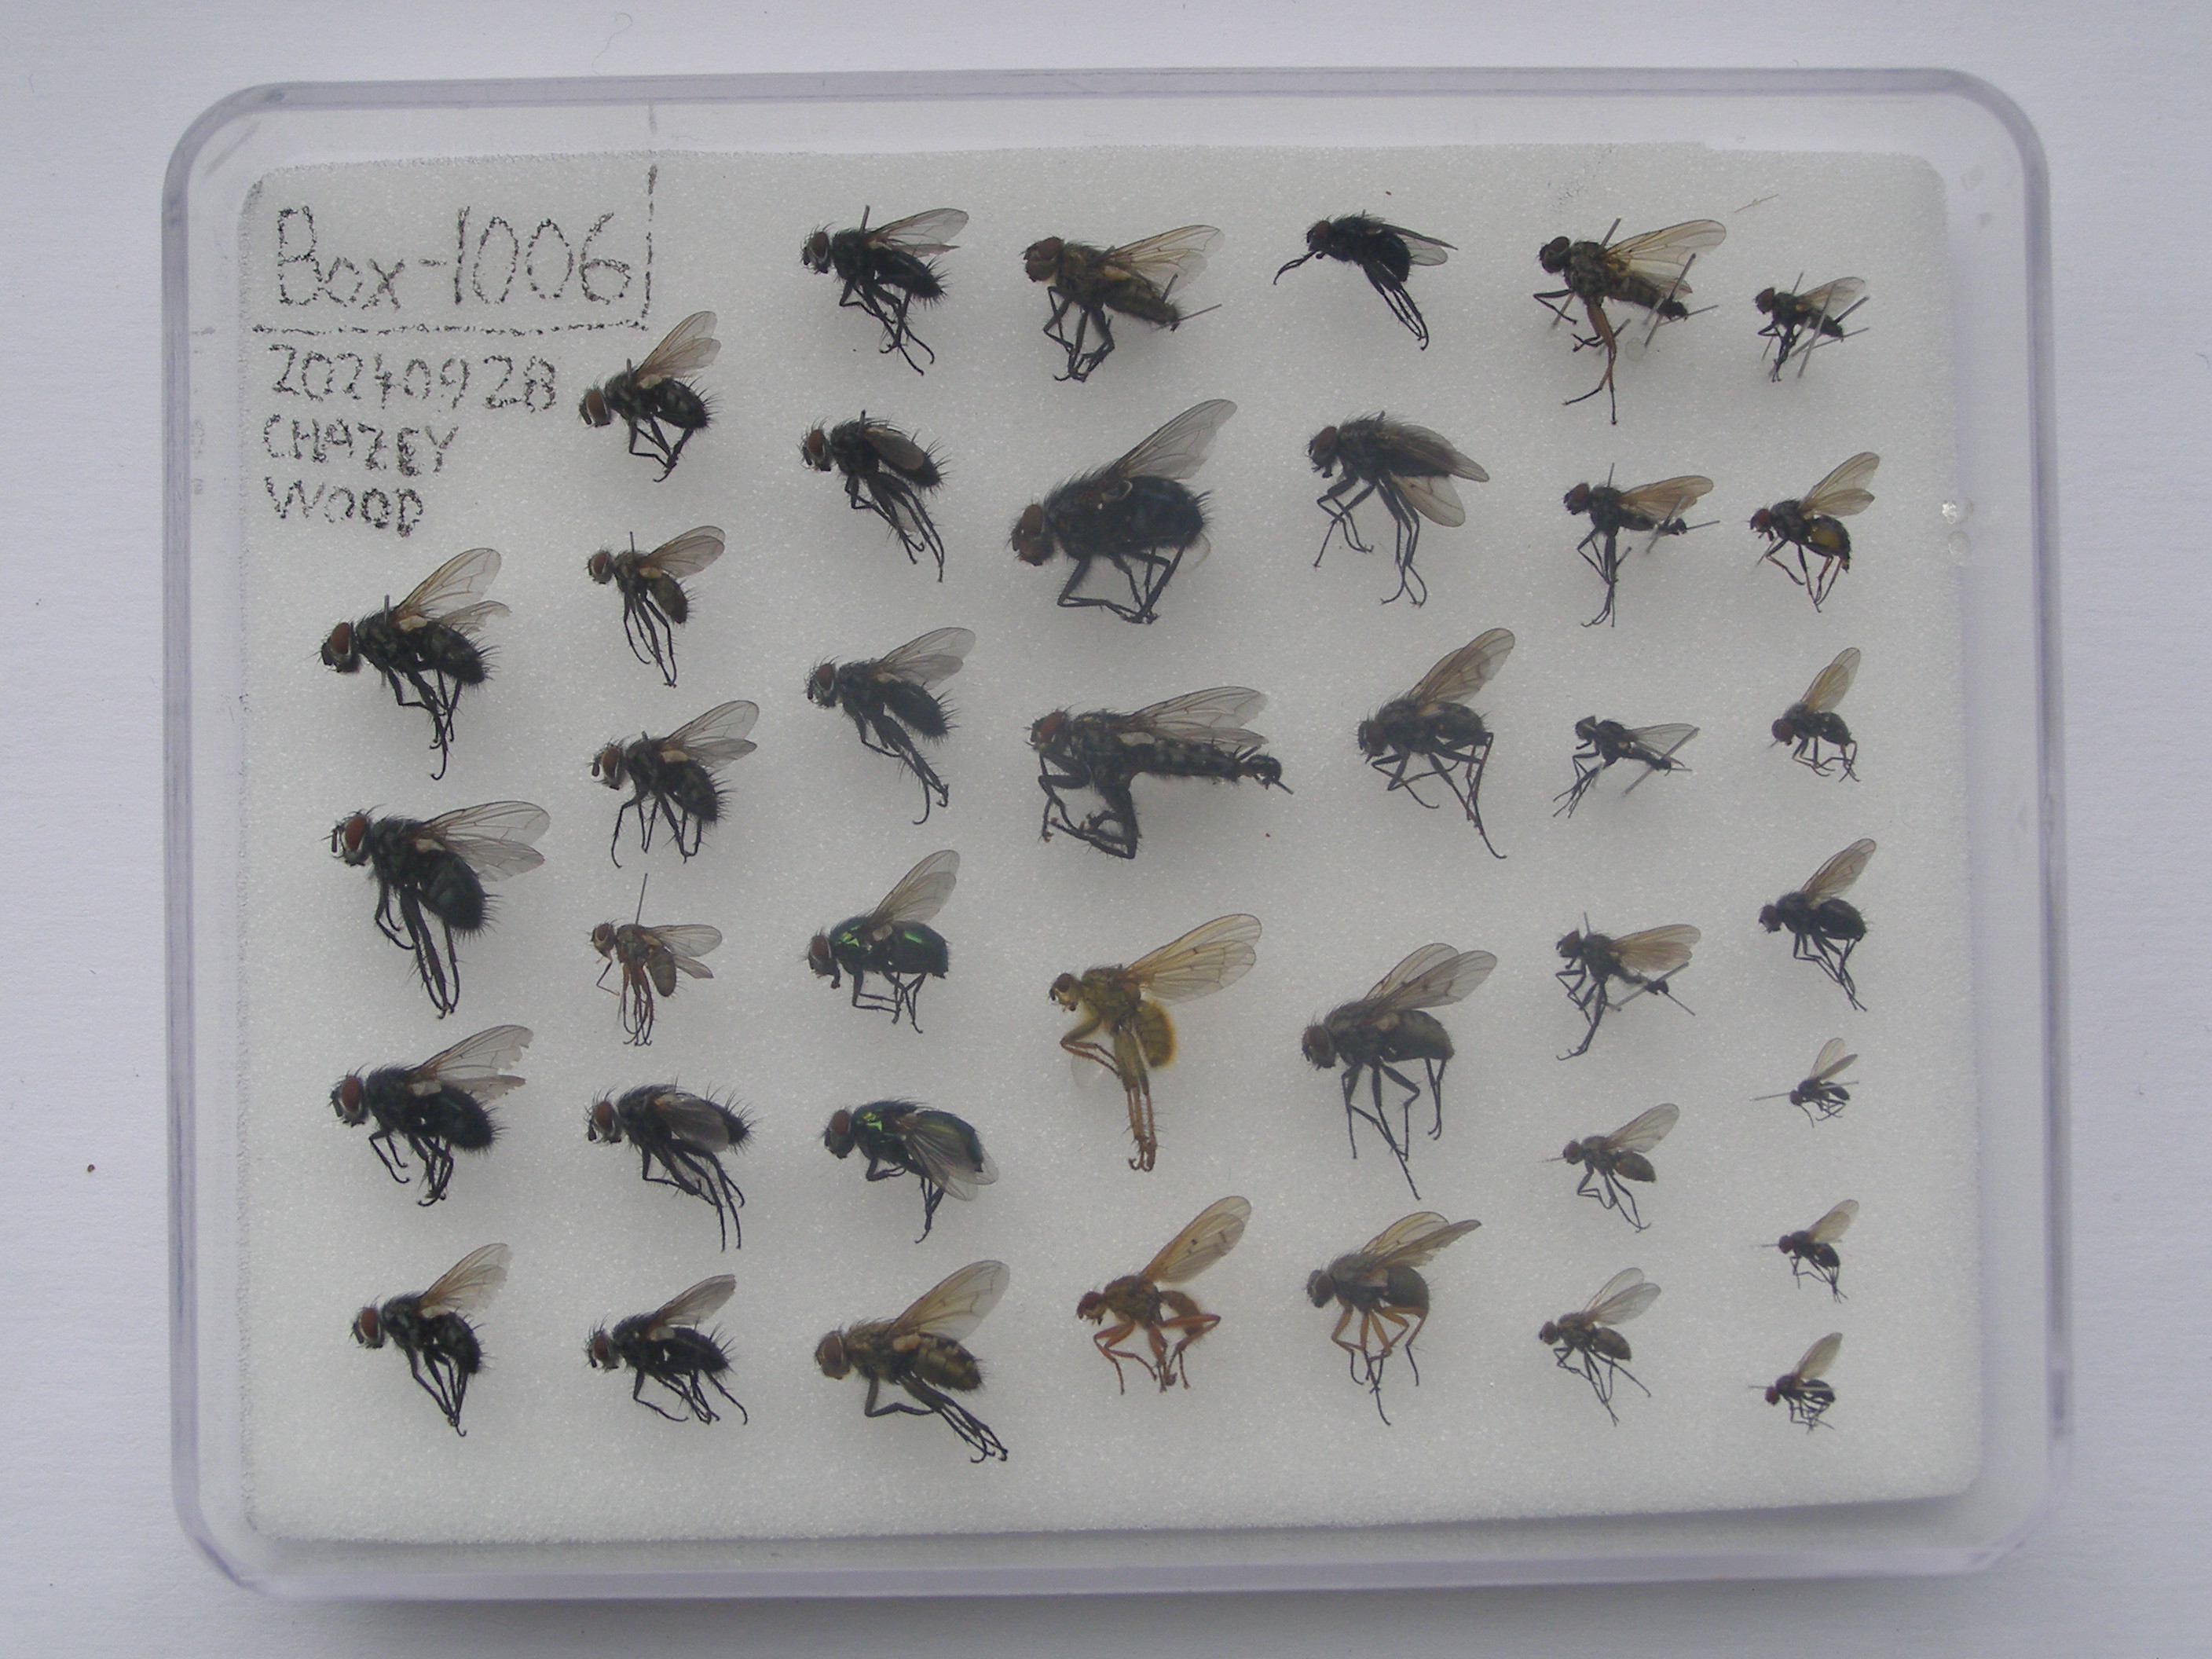 Box-1006
20240928
CHAZEY
WOOD